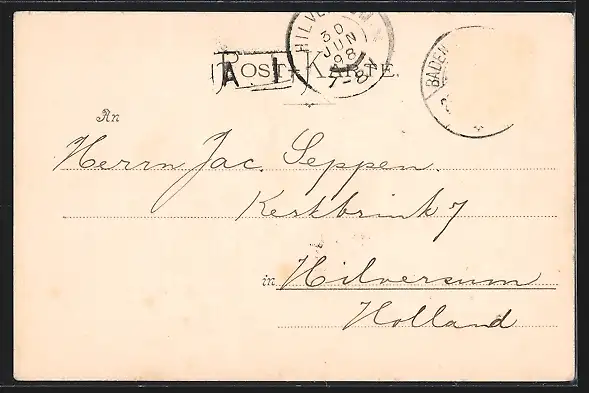 HILVERSUM
30
JUN
98
7-8V
BADEN
A I
POST-KARTE.
An
Herrn Jac. Seppen.
Kerkbrink 7
in Hilversum
Holland